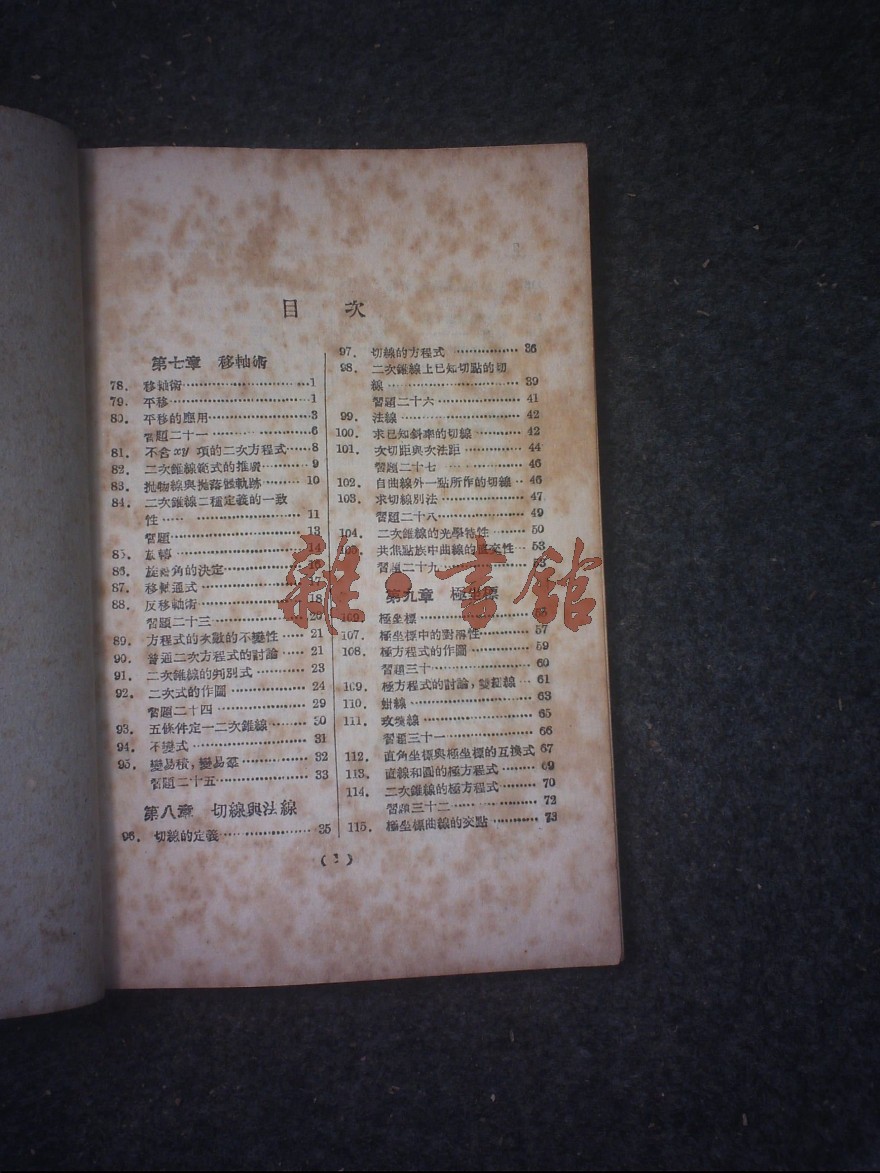 目 次
第七章 移軸術
78. 移軸術……1
79. 平移……1
80. 平移的應用……3
習題二十一……6
81. 不含 xy 項的二次方程式……8
82. 二次錐線範式的推廣……9
83. 拋物線與拋落體軌跡……10
84. 二次錐線二種定義的一致
性……11
習題……13
85. 旋轉……14
86. 旋轉角的決定……16
87. 移軸通式……17
88. 反移軸術……18
習題二十三……20
89. 方程式的次數的不變性……21
90. 普通二次方程式的討論……21
91. 二次錐線的判別式……23
92. 二次式的作圖……24
習題二十四……29
93. 五條件定一二次錐線……30
94. 不變式……31
95. 變易積,變易羣……32
習題二十五……33
第八章 切線與法線
96. 切線的定義……35
97. 切線的方程式……36
98. 二次錐線上已知切點的切
線……39
習題二十六……41
99. 法線……42
100. 求已知斜率的切線……42
101. 次切距與次法距……44
習題二十七……46
102. 自曲線外一點所作的切線……46
103. 求切線別法……47
習題二十八……49
104. 二次錐線的光學特性……50
105. 共焦點族中曲線的直交性……53
習題二十九……53
第九章 極坐標
106. 極坐標……55
107. 極坐標中的對稱性……57
108. 極方程式的作圖……59
習題三十……60
109. 極方程式的討論,雙紐線……61
110. 蚶線……63
111. 玫瑰線……65
習題三十一……66
112. 直角坐標與極坐標的互換式 67
113. 直線和圓的極方程式……69
114. 二次錐線的極方程式……70
習題三十二……72
115. 極坐標曲線的交點……73
( 1 )
雜·書館